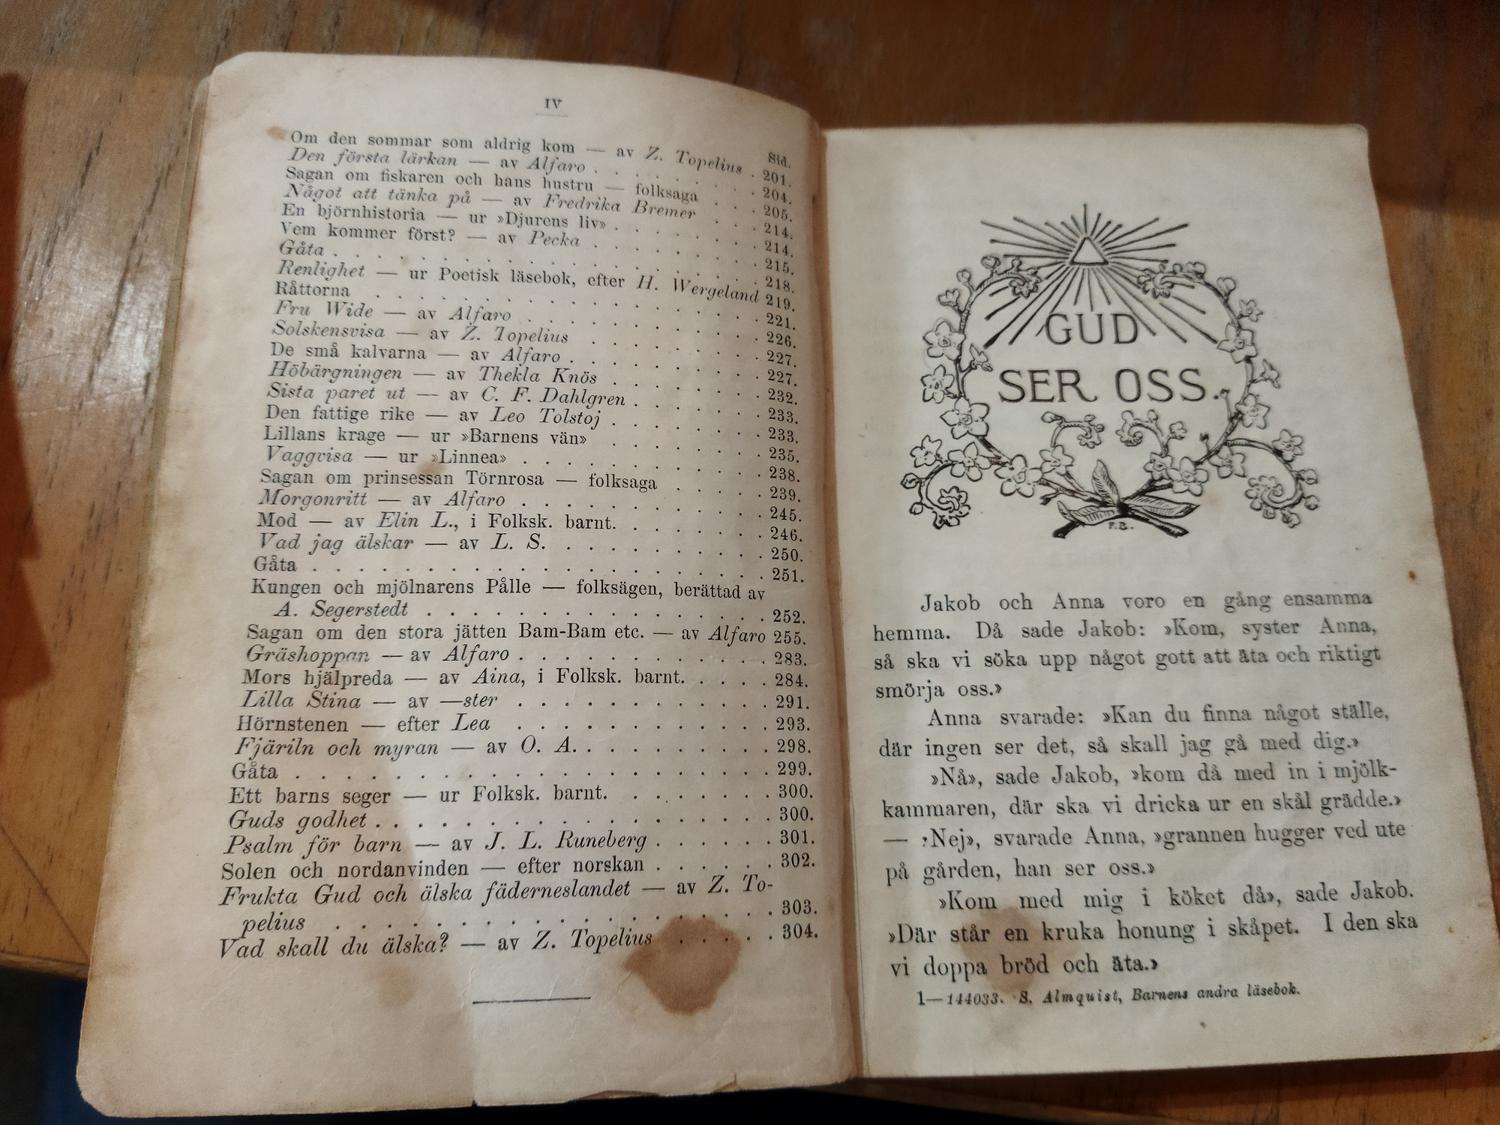 IV
Sid.
Om den sommar som aldrig kom — av Z. Topelius . 201.
Den första lärkan — av Alfaro . . . . . . . 204.
Sagan om fiskaren och hans hustru — folksaga . . . 205.
Något att tänka på — av Fredrika Bremer . . . 214.
En björnhistoria — ur »Djurens liv» . . . . . . . 214.
Vem kommer först? — av Pecka . . . . . . . . 215.
Gåta . . . . . . . . . . . . . . . . . 218.
Renlighet — ur Poetisk läsebok, efter H. Wergeland 219.
Råttorna . . . . . . . . . . . . . . . 221.
Fru Wide — av Alfaro . . . . . . . . . . 226.
Solskensvisa — av Z. Topelius . . . . . . . . 227.
De små kalvarna — av Alfaro . . . . . . . . . 227.
Höbärgningen — av Thekla Knös . . . . . . . . 232.
Sista paret ut — av C. F. Dahlgren . . . . . . . 233.
Den fattige rike — av Leo Tolstoj . . . . . . . . 233.
Lillans krage — ur »Barnens vän» . . . . . . . . 235.
Vaggvisa — ur »Linnea» . . . . . . . . . . . 238.
Sagan om prinsessan Törnrosa — folksaga . . . . 239.
Morgonritt — av Alfaro . . . . . . . . . . . 245.
Mod — av Elin L., i Folksk. barnt. . . . . . . . 246.
Vad jag älskar — av L. S. . . . . . . . . . . 250.
Gåta . . . . . . . . . . . . . . . . . . . 251.
Kungen och mjölnarens Pålle — folksägen, berättad av
A. Segerstedt . . . . . . . . . . . . . . . 252.
Sagan om den stora jätten Bam-Bam etc. — av Alfaro 255.
Gräshoppan — av Alfaro . . . . . . . . . . . 283.
Mors hjälpreda — av Aina, i Folksk. barnt. . . . . 284.
Lilla Stina — av —ster . . . . . . . . . . . 291.
Hörnstenen — efter Lea . . . . . . . . . . . 293.
Fjäriln och myran — av O. A. . . . . . . . . . 298.
Gåta . . . . . . . . . . . . . . . . . . . 299.
Ett barns seger — ur Folksk. barnt. . . . . . . . 300.
Guds godhet . . . . . . . . . . . . . . . . 300.
Psalm för barn — av J. L. Runeberg . . . . . . 301.
Solen och nordanvinden — efter norskan . . . . . . 302.
Frukta Gud och älska fäderneslandet — av Z. To-
pelius . . . . . . . . . . . . . . . . . 303.
Vad skall du älska? — av Z. Topelius . . . . . 304.
GUD
SER OSS.
F. B.
Jakob och Anna voro en gång ensamma
hemma. Då sade Jakob: »Kom, syster Anna,
så ska vi söka upp något gott att äta och riktigt
smörja oss.»
Anna svarade: »Kan du finna något ställe,
där ingen ser det, så skall jag gå med dig.»
»Nå», sade Jakob, »kom då med in i mjölk-
kammaren, där ska vi dricka ur en skål grädde.»
— »Nej», svarade Anna, »grannen hugger ved ute
på gården, han ser oss.»
»Kom med mig i köket då», sade Jakob.
»Där står en kruka honung i skåpet. I den ska
vi doppa bröd och äta.»
1—144033. S. Almquist, Barnens andra läsebok.